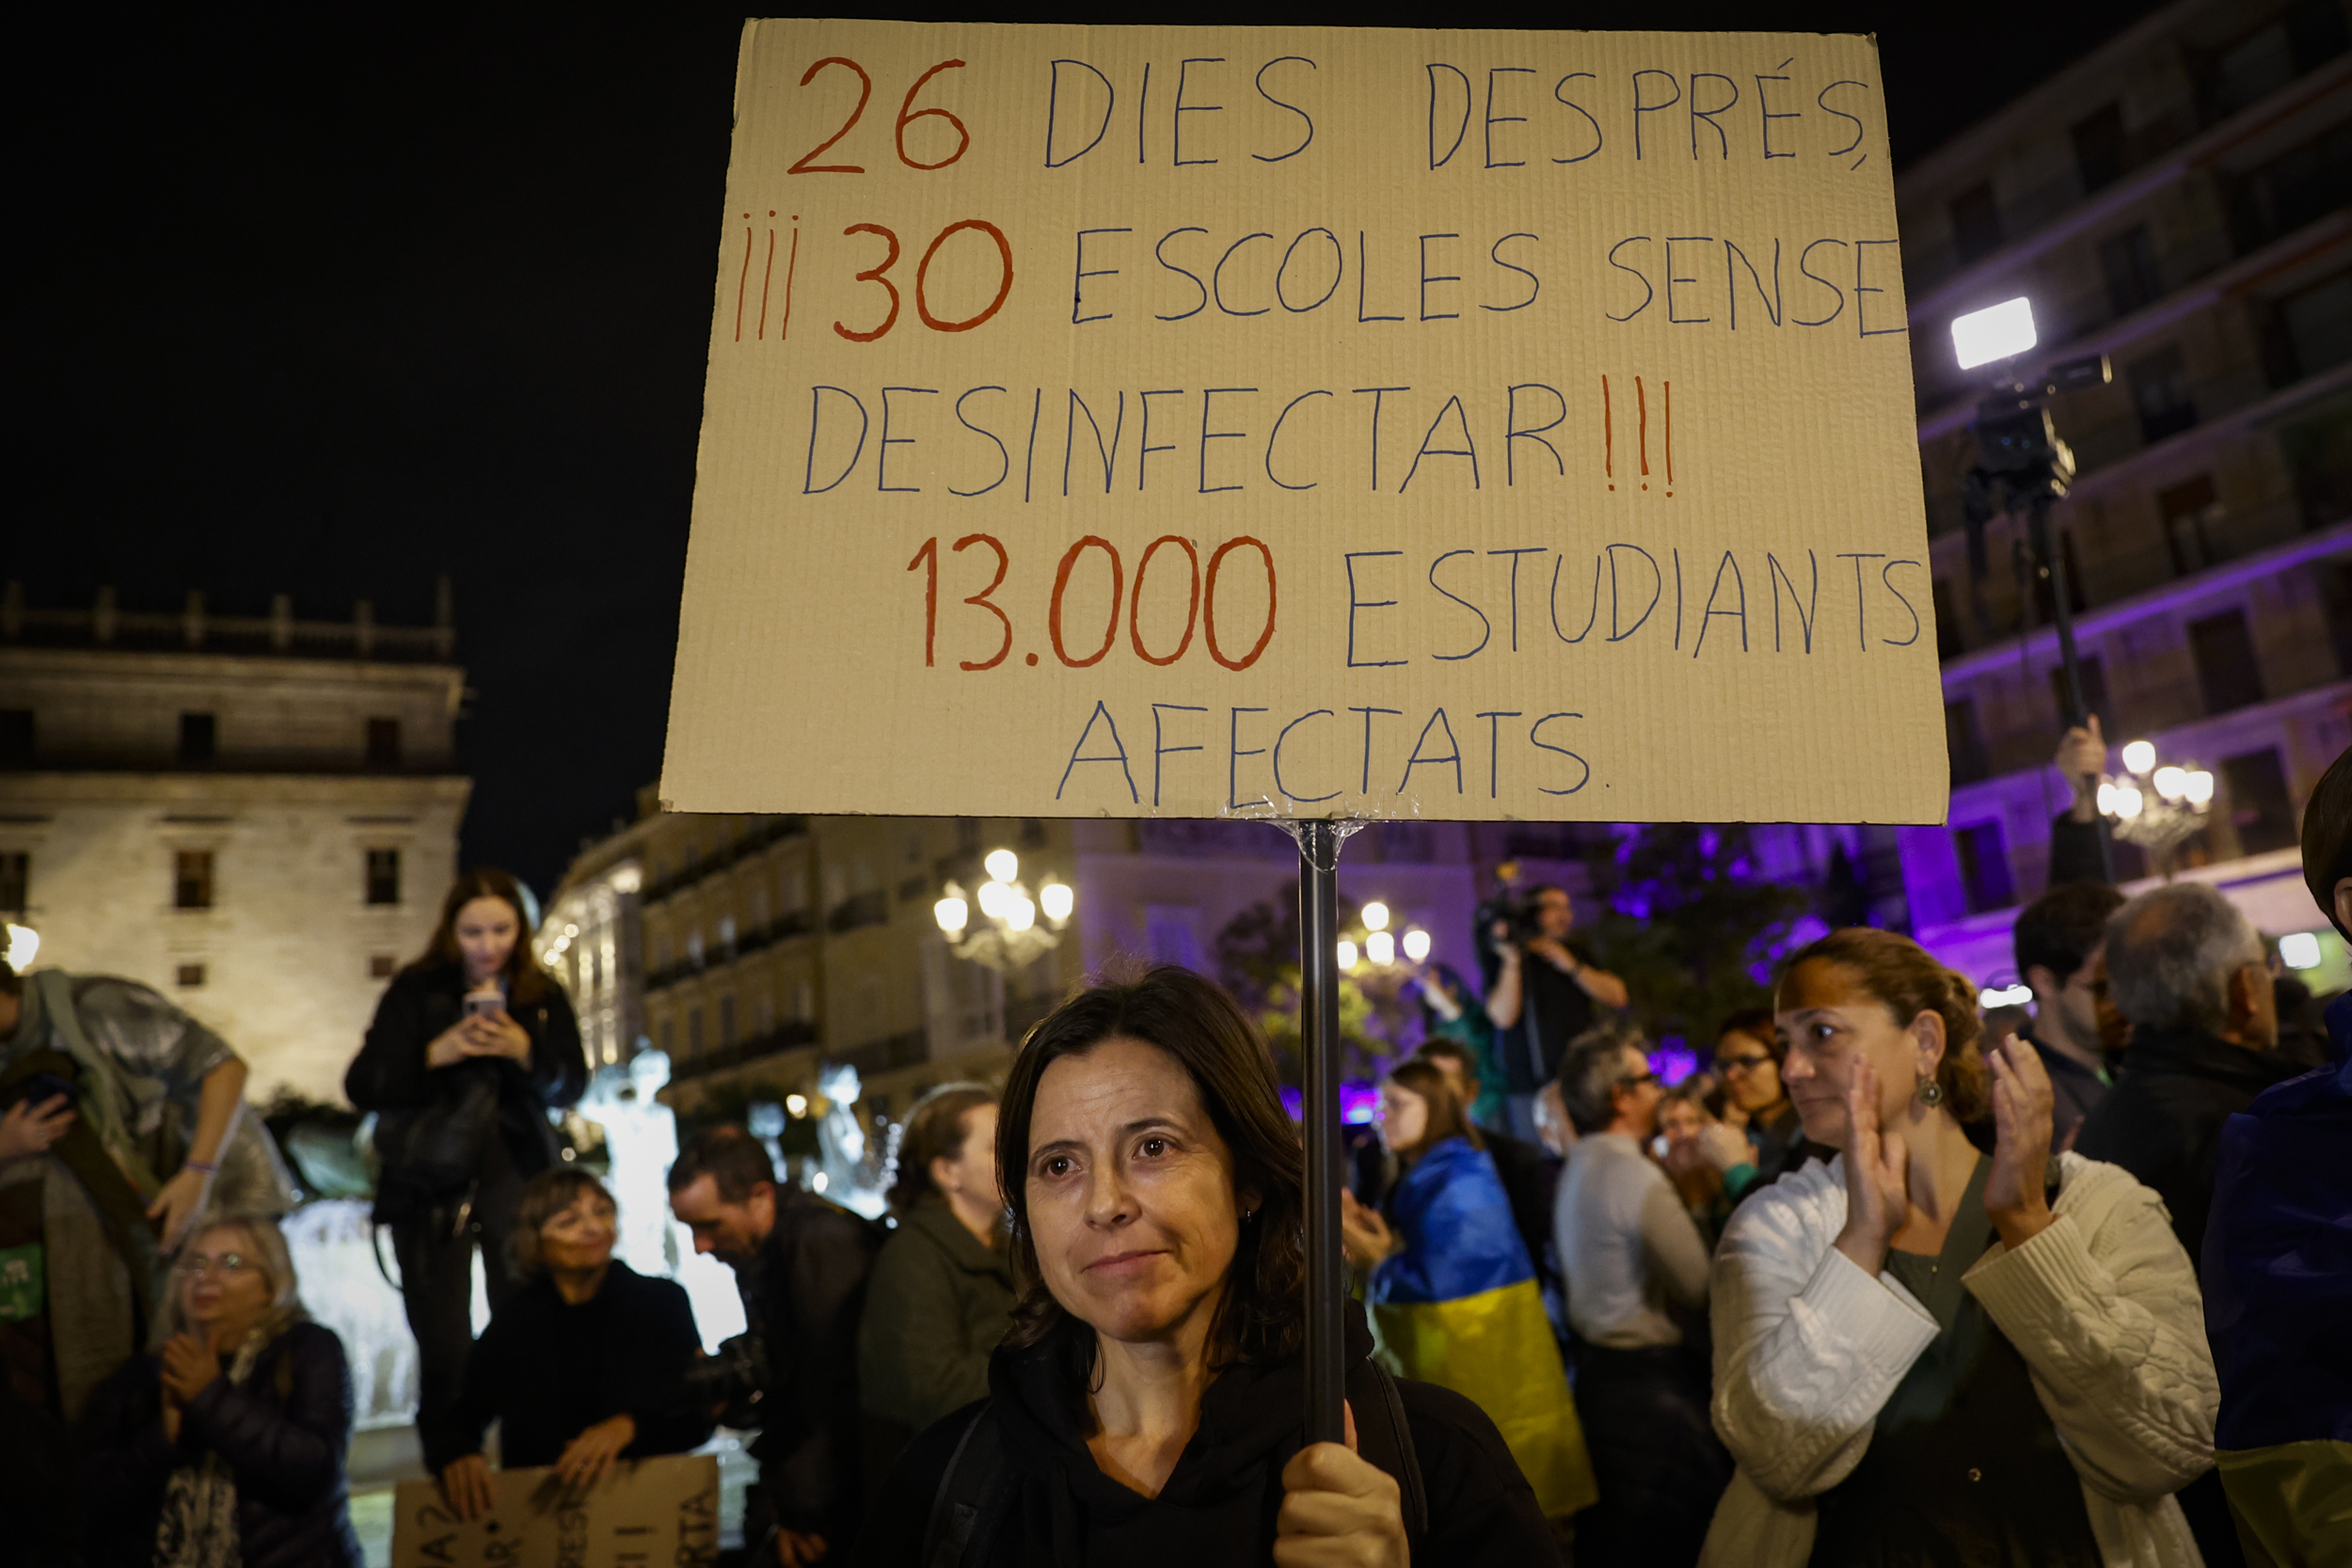 26 DIES DESPRÉS,
¡¡¡30 ESCOLES SENSE
DESINFECTAR!!!
13.000 ESTUDIANTS
AFECTATS.